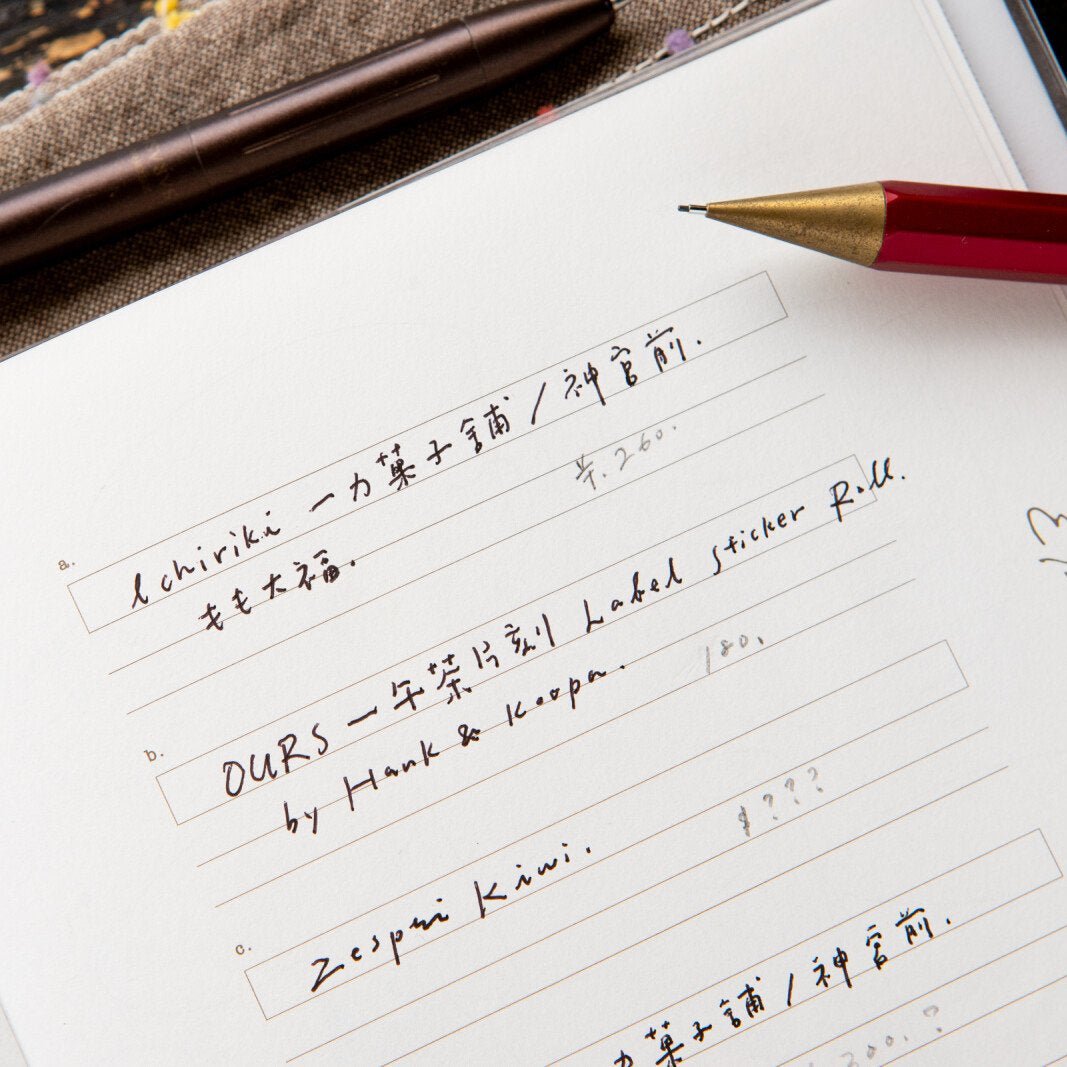 a.
Ichiriki 一力菓子舖 / 神宮前.
もも大福. ￥.260.
b.
OURS 一午茶片刻 Label Sticker Roll.
by Hank & Koopa. 180.
c.
Zespri Kiwi. $???
力菓子舖 / 神宮前.
300.?